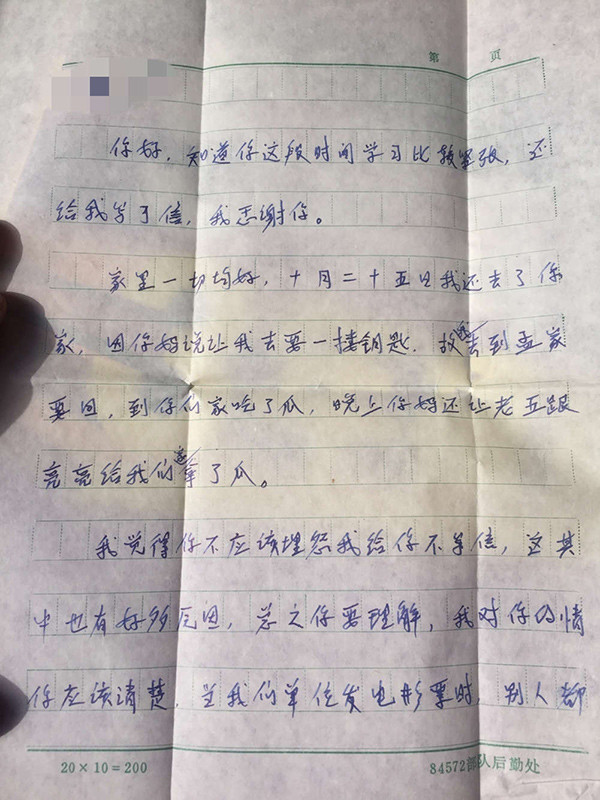 第 页
你好,知道你这段时间学习比较紧张,还
给我写了信,我感谢你。
家里一切均好,十月二十五日我还去了你
家,因你妈说让我去要一接钥匙,故去到孟家
要回,到你们家吃了瓜,晚上你妈还让老五跟
亮亮给我们送拿了瓜。
我觉得你不应该埋怨我给你不写信,这其
中也有好多原因,总之你要理解,我对你的情
你应该清楚,当我们单位发电影票时,别人都
20×10=200
84572部队后勤处